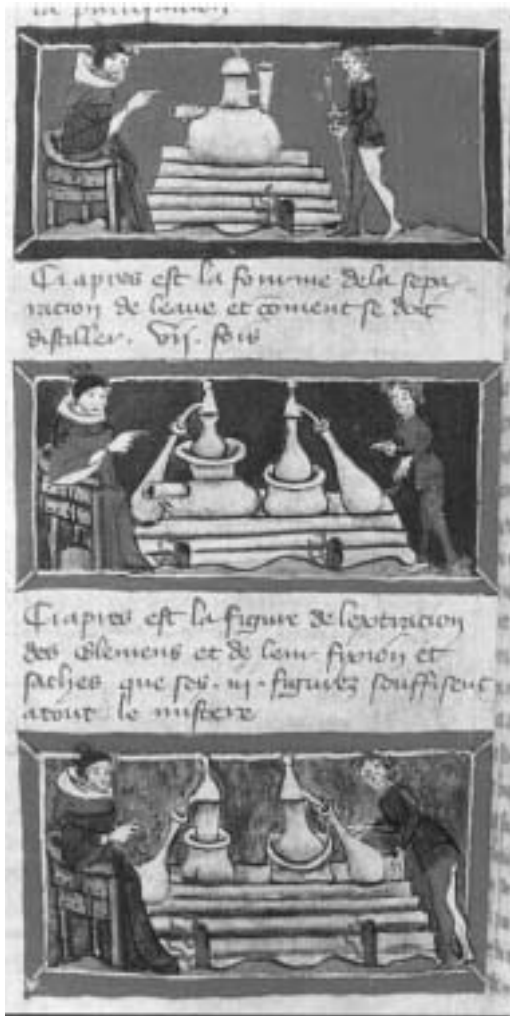 la purificacion
Ci apres est la fourme de la sepa
racion de leaue et coment se doit
distiller . vij . fois
Ci apres est la figure de lextracion
des elemens et de leur fixion et
saches que ses . iij . figures souffisent
atout le mistere